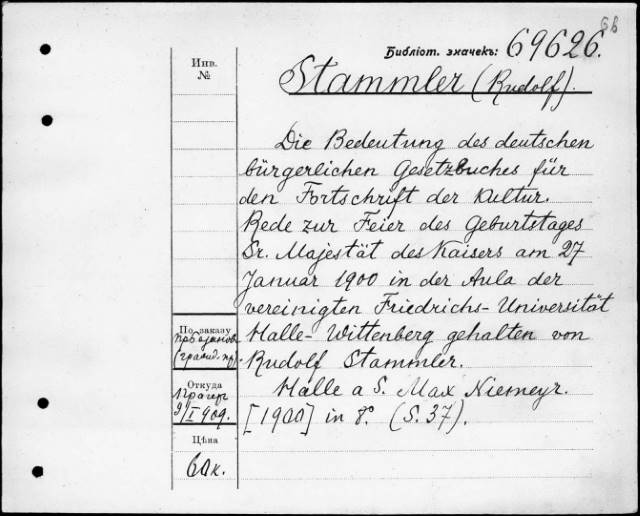 6б
Библіот. значекъ: 69626.
Инв.
№
Stammler (Rudolf).
Die Bedeutung des deutschen
bürgerlichen Gesetzbuches für
den Fortschrift der Kultur.
Rede zur Feier des Geburtstages
Sr. Majestät des Kaisers am 27
Januar 1900 in der Aula der
vereinigten Friedrichs-Universität
Halle-Wittenberg gehalten von
Rudolf Stammler.
Halle a S. Max Niemeyr.
[1900] in 8° (S. 37).
По заказу
(гражд. пр.)
Откуда
9/I 909.
Цѣна
60 к.